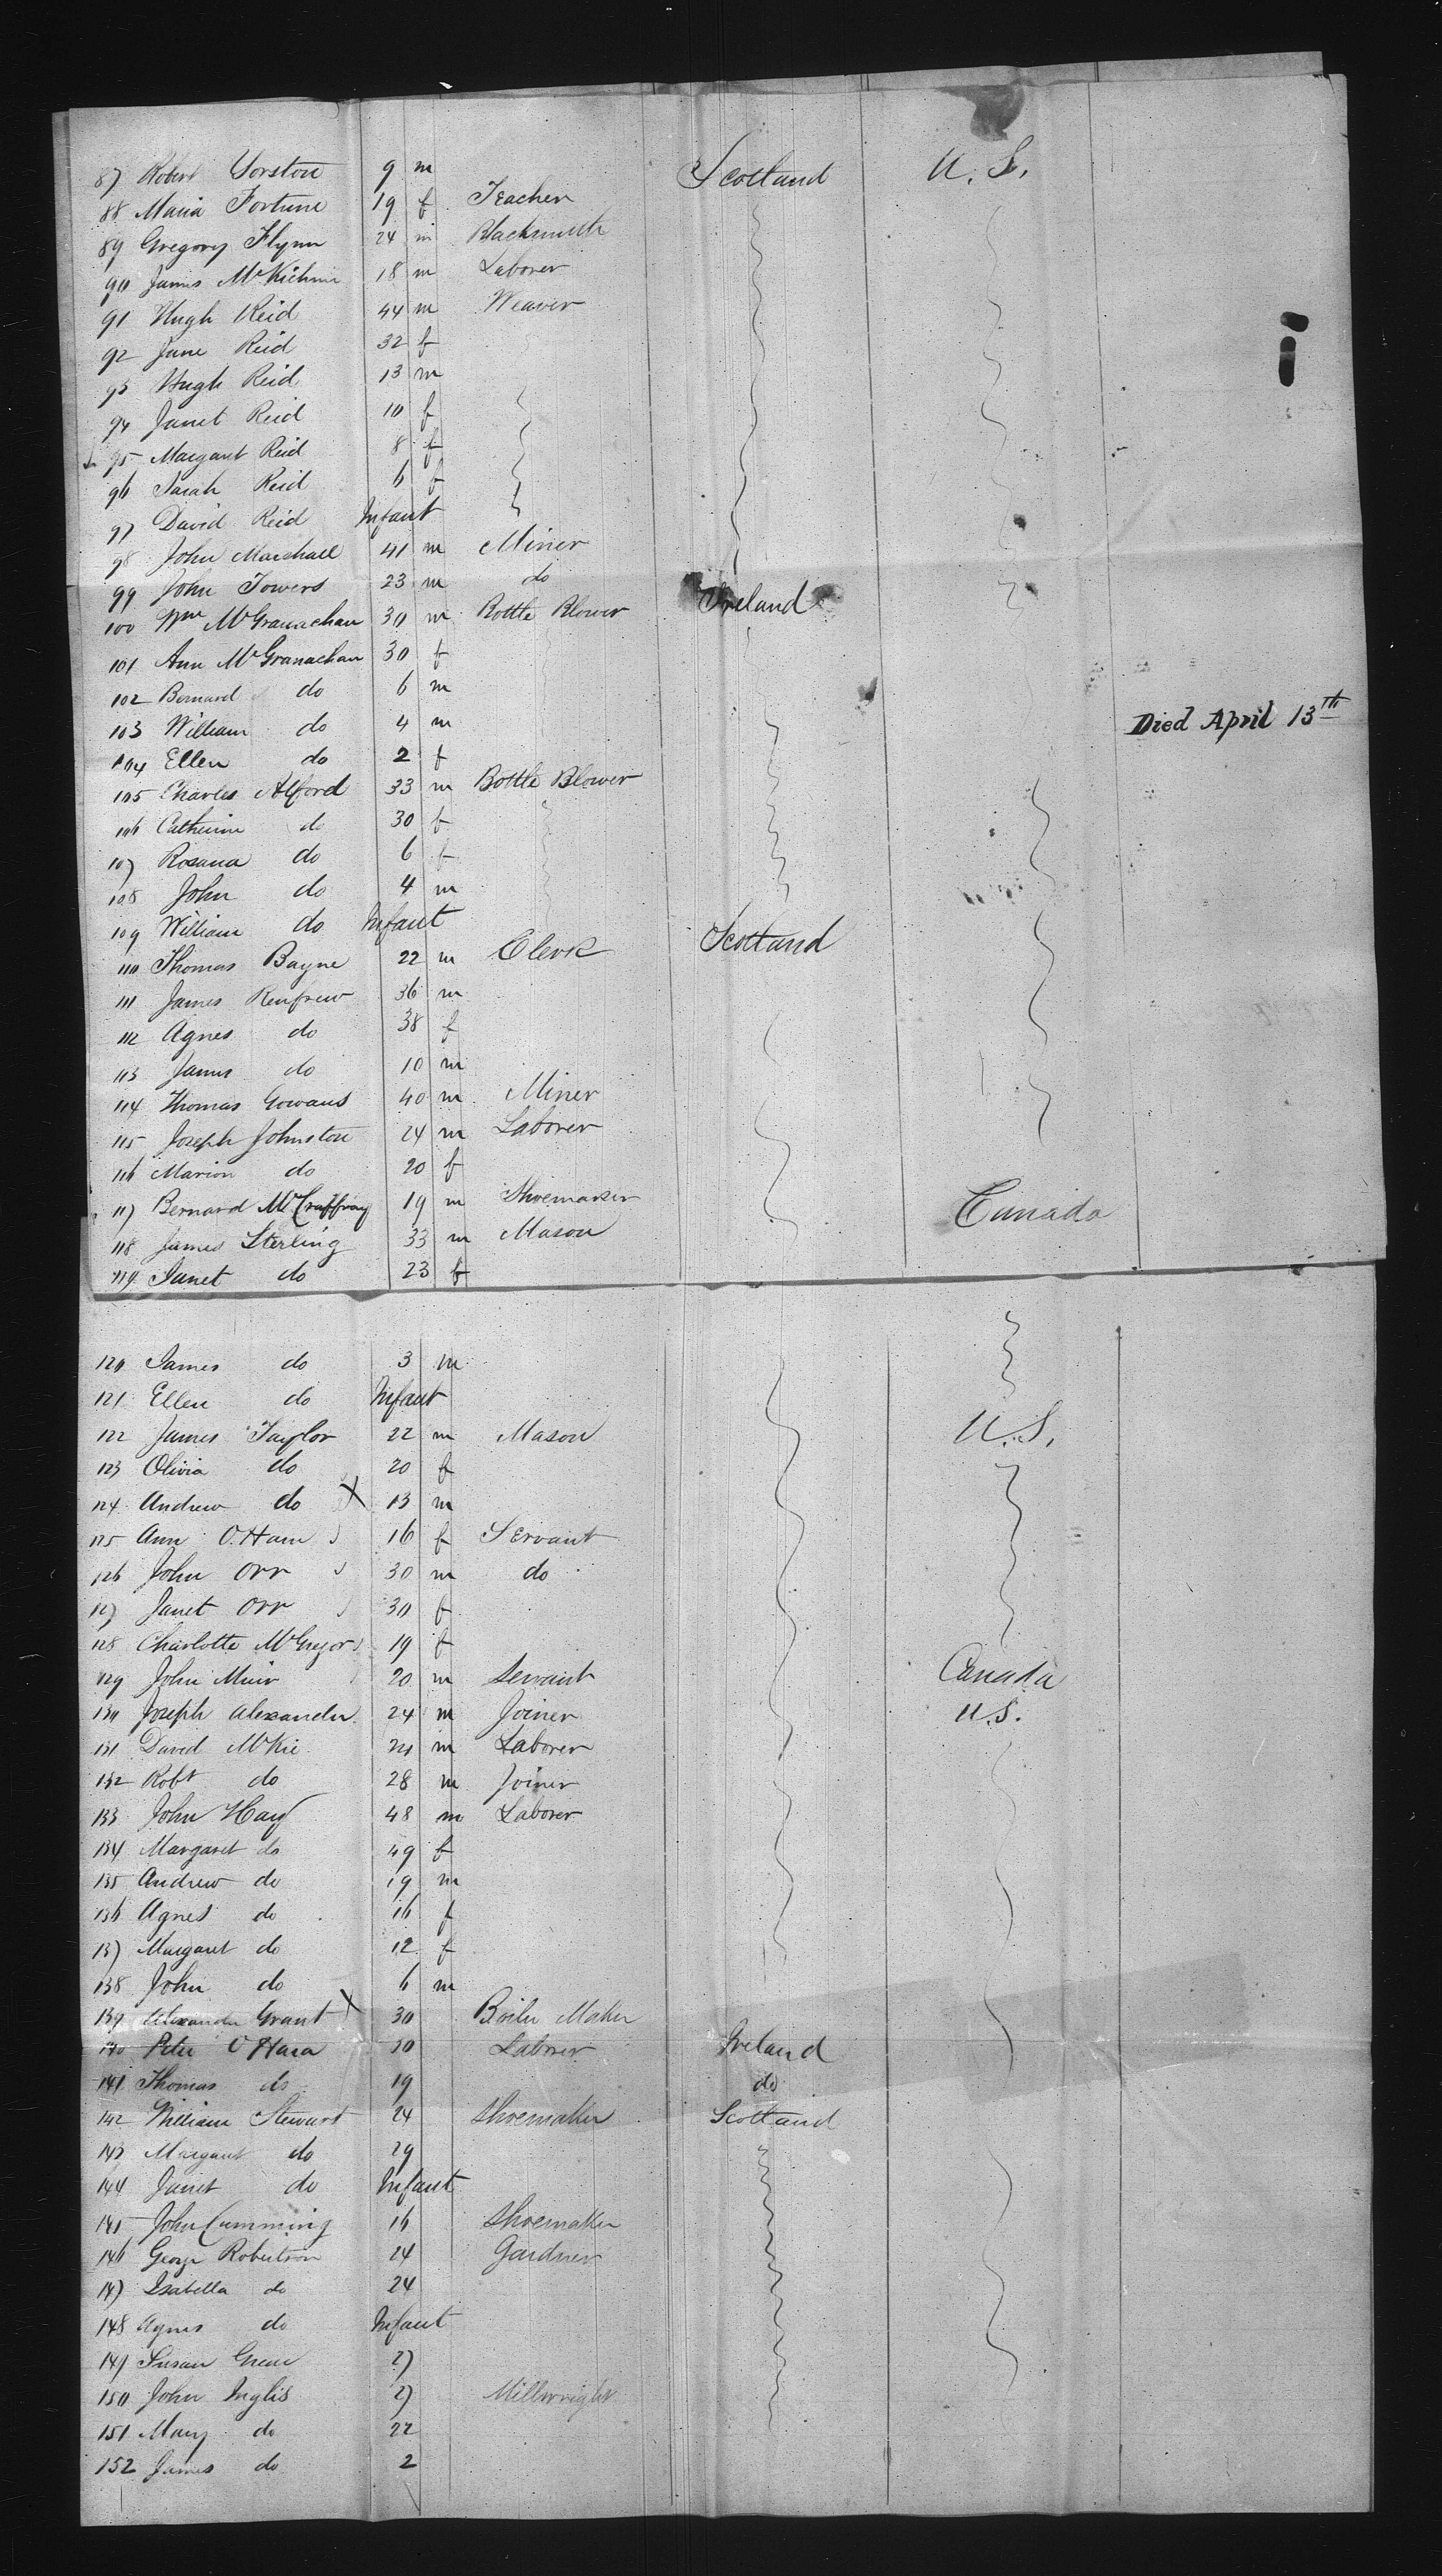 87 Robert Yorston 9 m Scotland U. S.
88 Maria Fortune 19 f Teacher
89 Gregory Flynn 24 m Blacksmith
90 James 18 m Laborer
91 Hugh Reid 44 m Weaver
92 Jane Reid 32 f
93 Hugh Reid 13 m
94 Janet Reid 10 f
95 Margaret Reid 8 f
96 Sarah Reid 6 f
97 David Reid Infant
98 John Marshall 41 m Miner
99 John Towers 23 m do
100 Wm McGranachan 30 m Bottle Blower Ireland
101 Ann McGranachan 30 f
102 Bernard do 6 m
103 William do 4 m Died April 13th
104 Ellen do 2 f
105 Charles Alford 33 m Bottle Blower
106 Catherine do 30 f
107 Rosana do 6 f
108 John do 4 m
109 William do Infant
110 Thomas Bayne 22 m Clerk Scotland
111 James Renfrew 36 m
112 Agnes do 38 f
113 James do 10 m
114 Thomas Gowans 40 m Miner
115 Joseph Johnston 24 m Laborer
116 Marion do 20 f
117 Bernard 19 m Shoemaker Canada
118 James Sterling 33 m Mason
119 Janet do 23 f
120 James do 3 m
121 Ellen do Infant
122 James Taylor 22 m Mason U. S.
123 Olivia do 20 f
124 Andrew do X 13 m
125 Ann 16 f Servant
126 John Orr 30 m do
127 Janet Orr 30 f
128 Charlotte McGregor 19 f
129 John Muir 20 m Servant Canada
130 Joseph Alexander 24 m Joiner U.S.
131 David McKie m Laborer
132 Robt do 28 m Joiner
133 John Hay 48 m Laborer
134 Margaret do 49 f
135 Andrew do 19 m
136 Agnes do 16 f
137 Margaret do 12 f
138 John do 6 m
139 Alexander Grant X 30 Boiler Maker
140 Peter O'Hara Laborer Ireland
141 Thomas do 19 do
142 William Stewart 24 Shoemaker Scotland
143 Margaret do 29
144 Janet do Infant
145 John Cumming 16 Shoemaker
146 George Robertson 24 Gardner
147 Isabella do 24
148 Agnes do Infant
149 Susan 27
150 John Inglis 27 Millwright
151 Mary do 22
152 James do 2